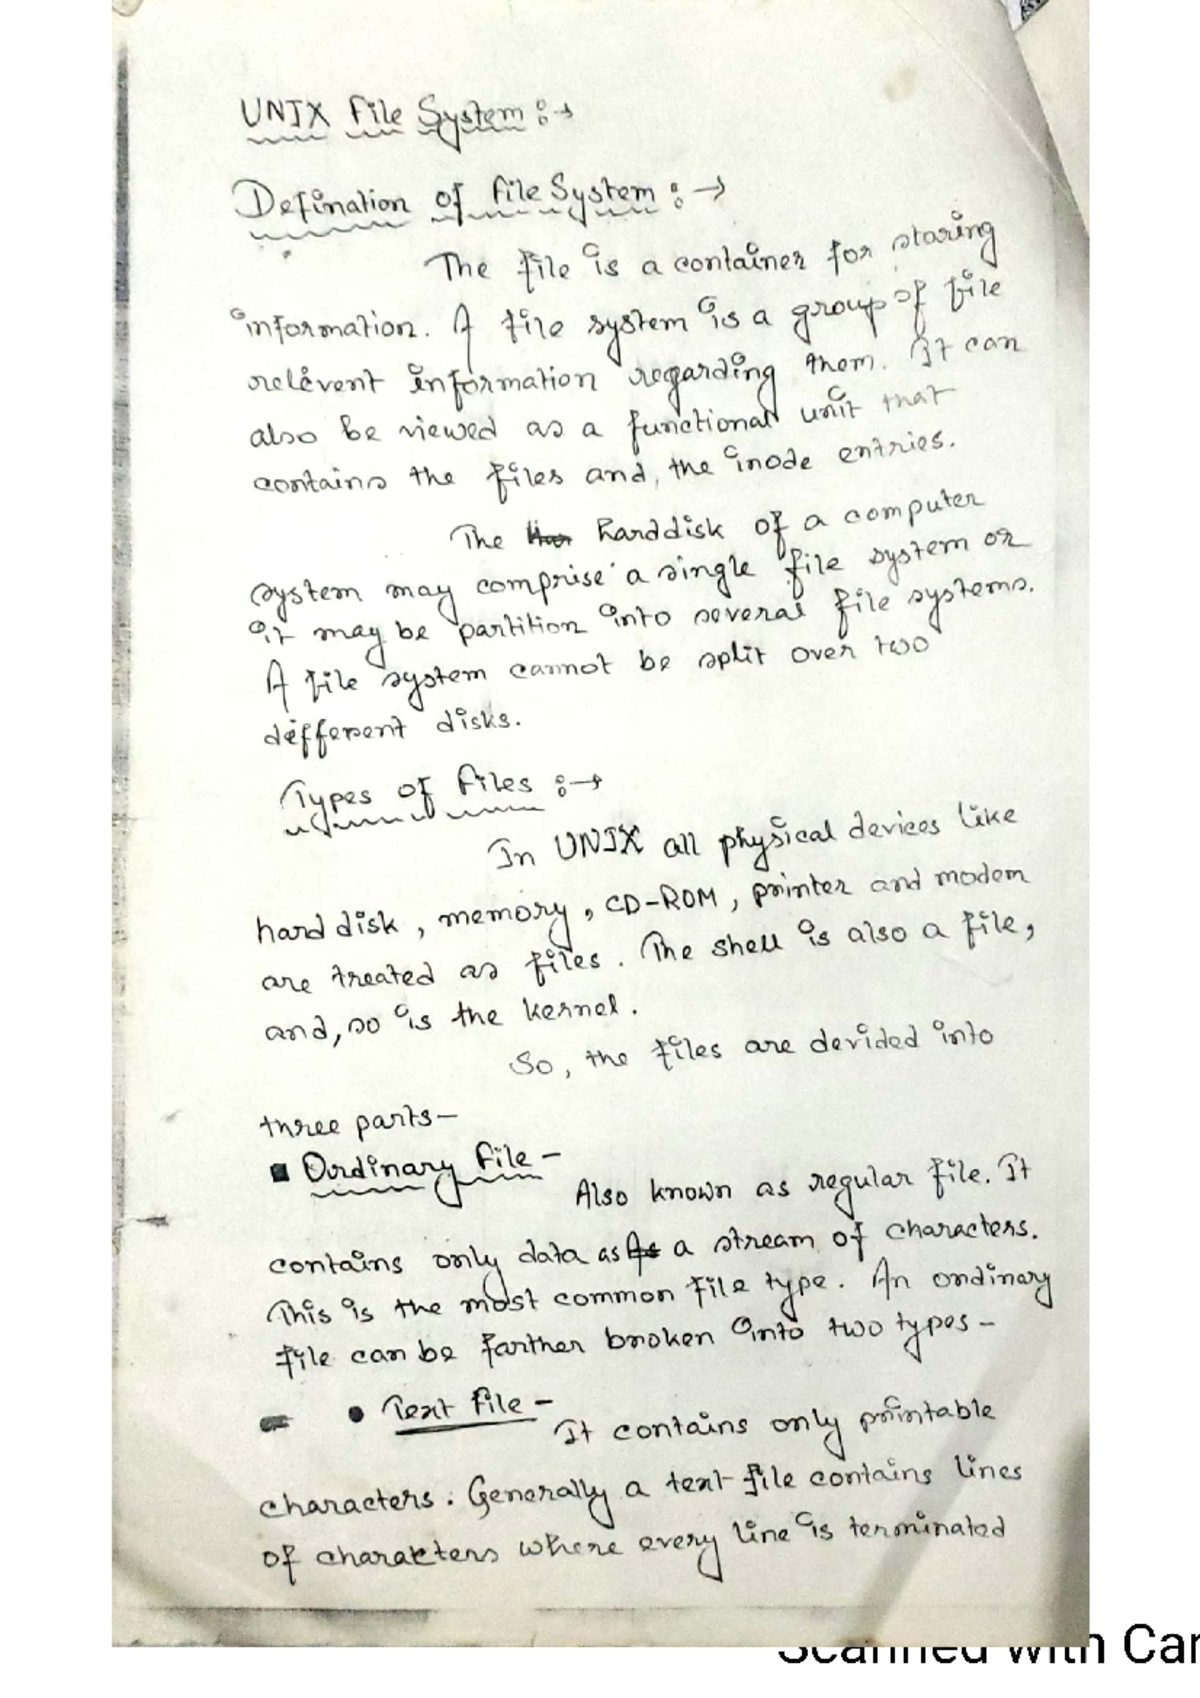 UNIX File System :→
Defination of file System :→
The file is a container for storing
information. A file system is a group of file
relevent information regarding them. It can
also be viewed as a functional unit that
contains the files and, the inode entries.
The harddisk of a computer
system may comprise a single file system or
it may be partition into several file systems.
A file system cannot be split over two
different disks.
Types of files :→
In UNIX all physical devices like
hard disk, memory, CD-ROM, printer and modem
are treated as files. The shell is also a file,
and, so is the kernel.
So, the files are devided into
three parts—
■ Ordinary file -
Also known as regular file. It
contains only data as a stream of characters.
This is the most common file type. An ordinary
file can be farther broken into two types -
• Text file -
It contains only printable
characters. Generally a text file contains lines
of characters where every line is terminated
Scanned with Car